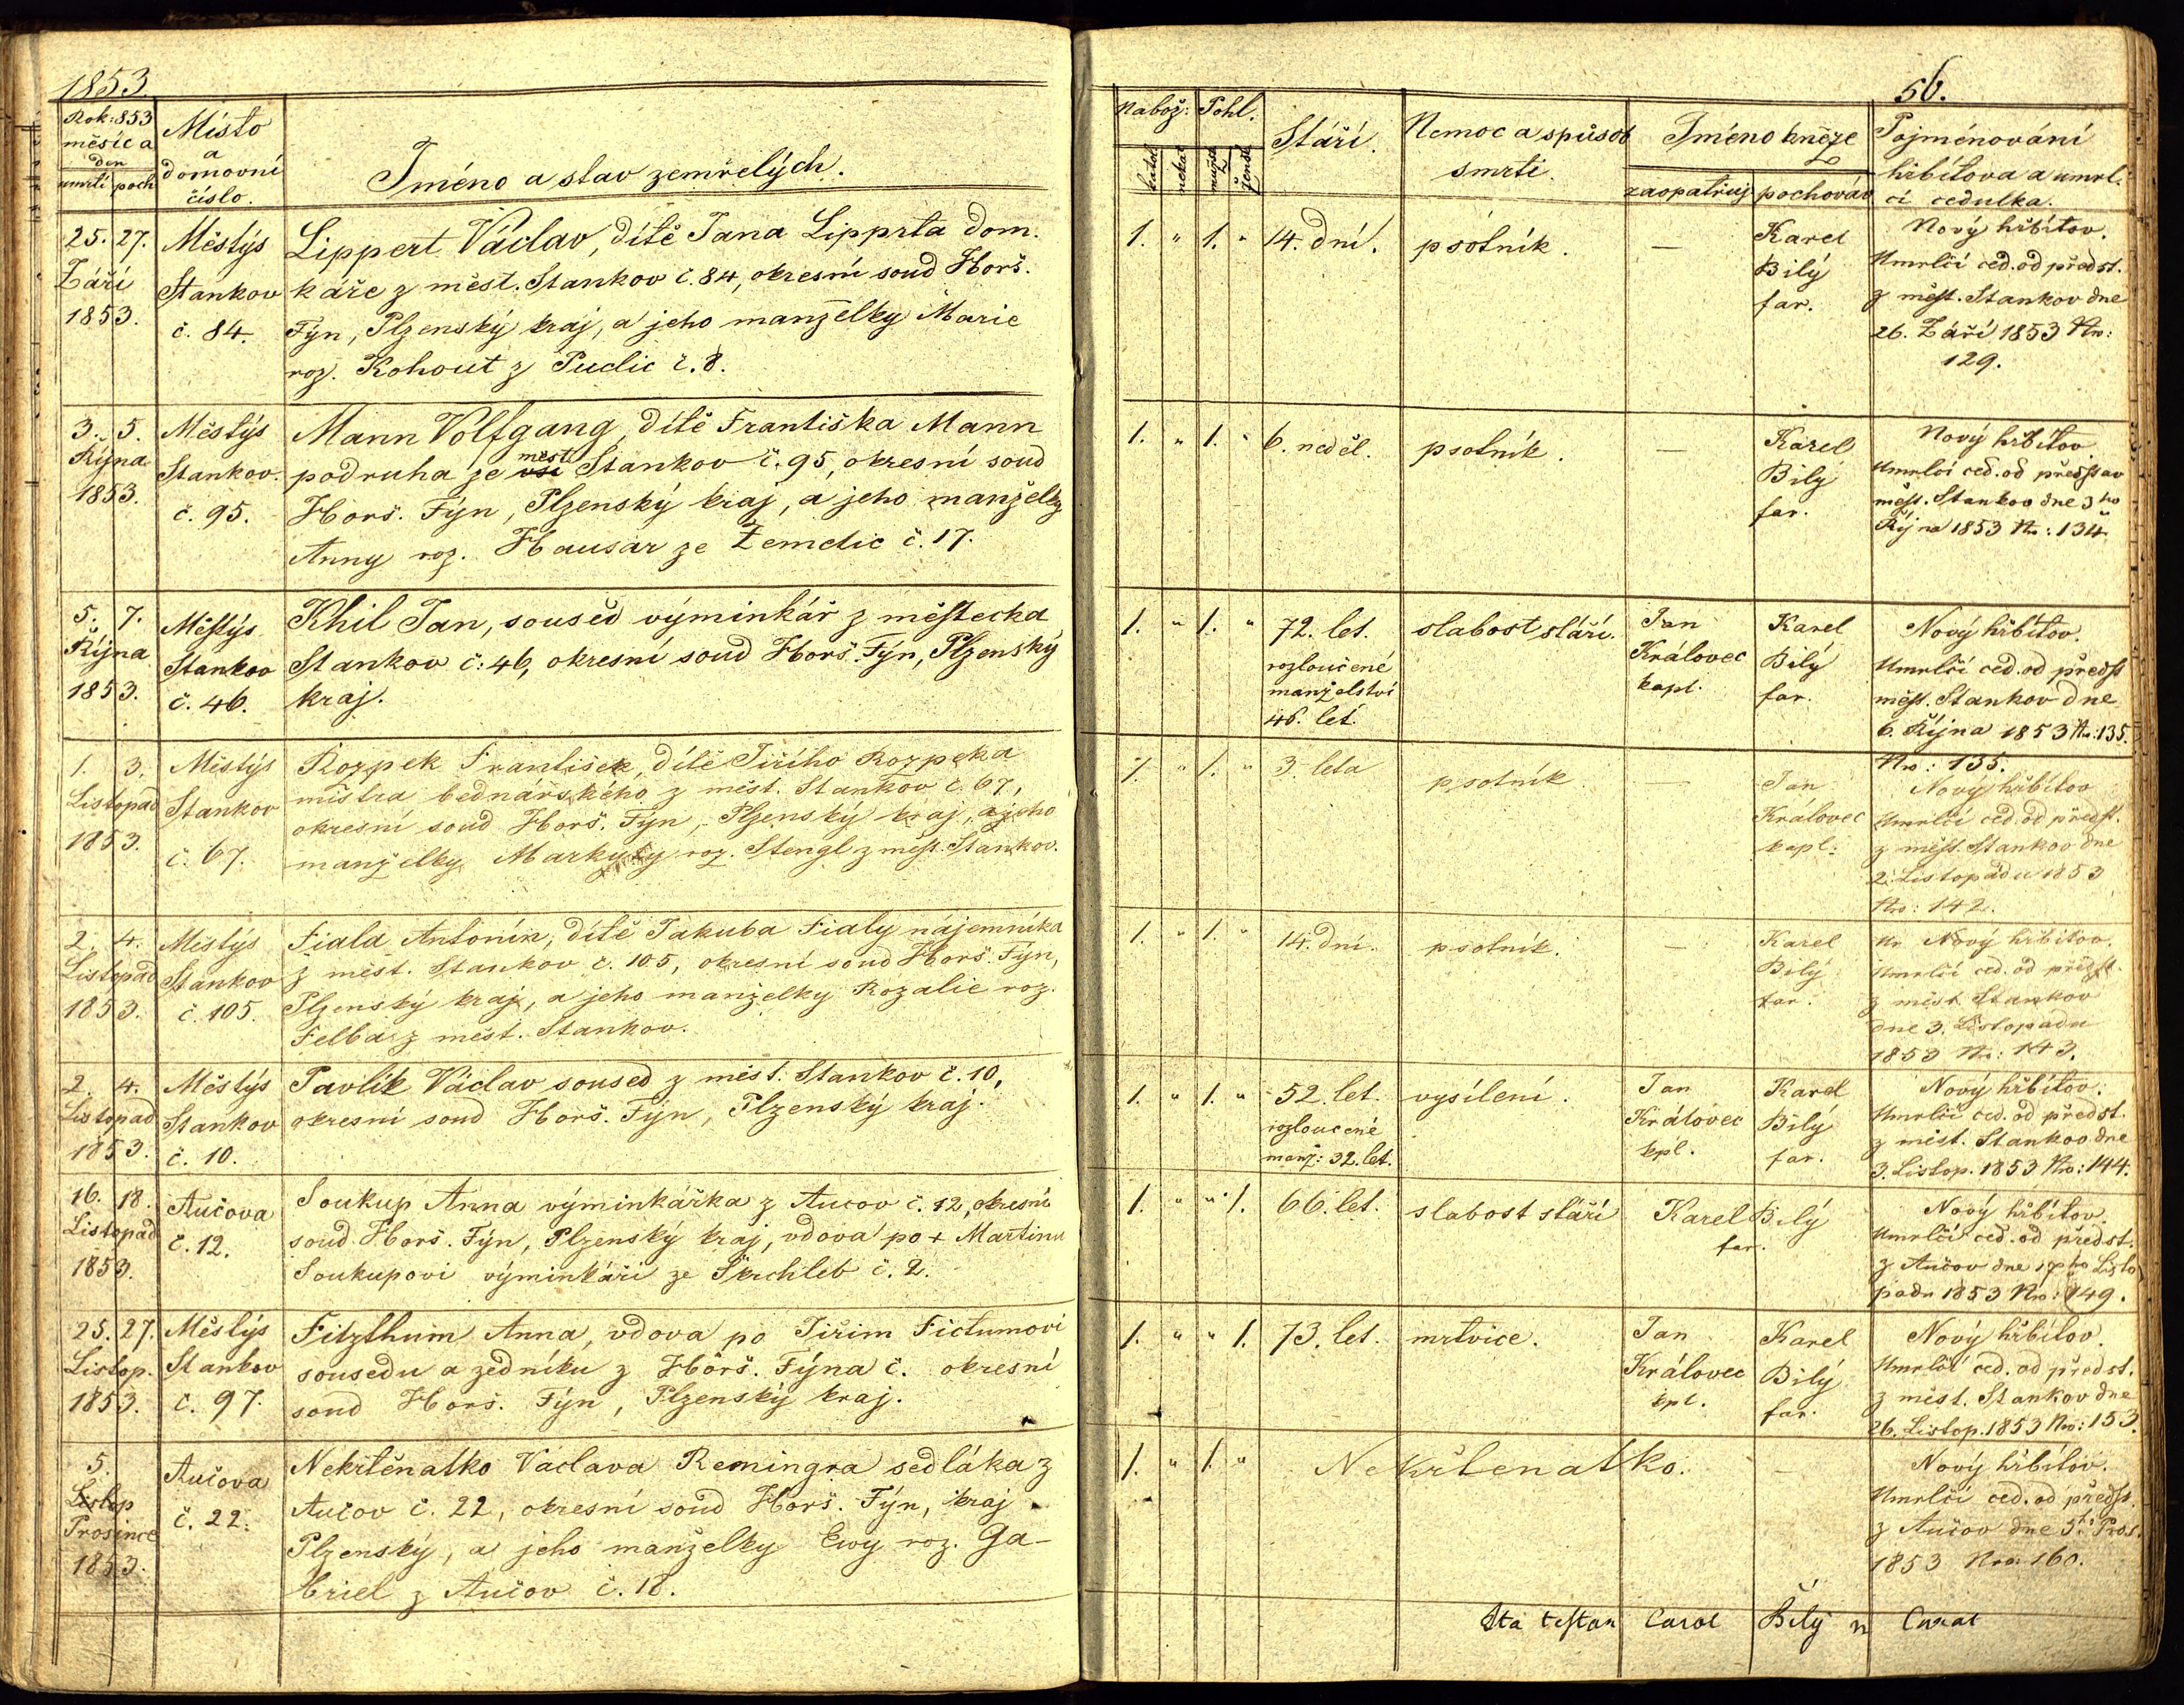 1853.
Rok: 853
měsíc a
den
umrtí poch
Místo
a
domovní
číslo.
Jméno a stav zemřelých.
25. 27.
Září
1853.
Městýs
Stankov
č. 84.
Lippert Václav, dítě Jana Lipprta dom.
káře z měst. Stankov č. 84, okresní soud Horš.
Týn, Plzenský kraj, a jeho manželky Marie
roz. Kohout z Puclic č. 8.
3. 5.
Října
1853.
Městýs
Stankov.
č. 95.
Mann Volfgang, dítě Františka Mann
měst
podruha ze vsi Stankov č. 95, okresní soud
Horš. Týn, Plzenský kraj, a jeho manželky
Anny roz. Hausar ze Žemdic č. 17.
5. 7.
Října
1853.
Městýs
Stankov
č. 46.
Khil Jan, soused výminkář z městecka
Stankov č: 46, okresní soud Horš. Týn, Plzenský
kraj.
1. 3.
Listopad
1853.
Městýs
Stankov
č. 67.
Rozpek František, dítě Jiřího Rozpeka
mistra bednářského z měst. Stankov č. 67,
okresní soud Horš. Týn, Plzenský kraj, a jeho
manželky Markyty roz. Stengl z měst. Stankov.
2. 4.
Listopad
1853.
Městýs
Stankov
č. 105.
Fiala Antonín, dítě Jakuba Fialy nájemníka
z měst. Stankov č. 105, okresní soud Horš. Týn,
Plzenský kraj, a jeho manželky Rozalie roz.
Felba z měst. Stankov.
2. 4.
Listopad
1853.
Městýs
Stankov
č. 10.
Pavlík Václav soused z měst. Stankov č. 10,
okresní soud Horš. Týn, Plzenský kraj.
16. 18.
Listopad
1853.
Aučova
č. 12.
Soukup Anna výminkářka z Aucov č. 12, okresní
soud Horš. Týn, Plzenský kraj, vdova po + Martinu
Soukupovi výminkáři ze Škrchleb č. 2.
25. 27.
Listop.
1853.
Městýs
Stankov
č. 97.
Fitzthum Anna, vdova po Jiřím Fictumovi
sousedu a zedníku z Horš. Týna č. okresní
soud Horš. Týn, Plzenský kraj.
5.
Listop
Prosince
1853.
Aučova
č. 22.
Nekřtěnatko Václava Remingra sedláka z
Aučov č. 22, okresní soud Horš. Týn, kraj
Plzenský, a jeho manželky Evy roz. Ga-
briel z Aučov č. 18.
56.
Nabož: Pohl.
katol nekat mužsk ženské
Stáří.
Nemoc a spůsob
smrti.
Jméno kněze
zaopatřuj pochovav
Pojménování
hřbítova a umrl.
čí cedulka.
1. " 1. " 14. dní. psotník. —
Karel
Bilý
far.
Nový hřbítov.
Umrlčí ced. od předst.
z měst. Stankov dne
26. Září 1853 Nro:
129.
1. " 1. " 6. neděl. psotník. —
Karel
Bilý
far.
Nový hřbítov
Umrlčí ced. od představ
měst. Stankov dne 3ho
Října 1853 Nro: 134.
1. " 1. " 72. let.
rozloučené
manželství
46. let.
slabost stáří.
Jan
Královec
kapl.
Karel
Bilý
far.
Nový hřbítov.
Umrlčí ced. od předst
měst. Stankov dne
6. Října 1853 Nro: 135.
1. " 1. " 3. leta psotník —
Jan
Královec
kapl:
Nro: 135.
Nový hřbítov
Umrlčí ced. od předst.
z měst. Stankov dne
2. Listopadu 1853
Nro: 142.
1. " 1. " 14. dní. psotník. —
Karel
Bilý
far.
Nový hřbítov.
Umrlčí ced. od předst.
z měst. Stankov
dne 3. Listopadu
1853 Nro: 143.
1. " 1. " 52. let.
rozloučené
manž: 32. let.
vysílení.
Jan
Královec
kpl.
Karel
Bilý
far.
Nový hřbítov.
Umrlčí ced. od předst.
z měst. Stankov dne
3. Listop. 1853 Nro: 144.
1. " " 1. 66. let. slabost stáří
Karel Bilý
far.
Nový hřbítov
Umrlčí ced. od předst.
z Aučov dne 17ho Listo
padu 1853 Nro: 149.
1. " " 1. 73. let. mrtvice.
Jan
Královec
kpl.
Karel
Bilý
far.
Nový hřbítov.
Umrlčí ced. od předst.
z měst. Stankov dne
26. Listop. 1853 Nro: 153.
1. " 1. " Nekřtenatko. —
Nový hřbítov.
Umrlčí ced. od předst.
z Aučov dne 5ti Pros.
1853 Nro: 160.
Ita testor Carol Bilý